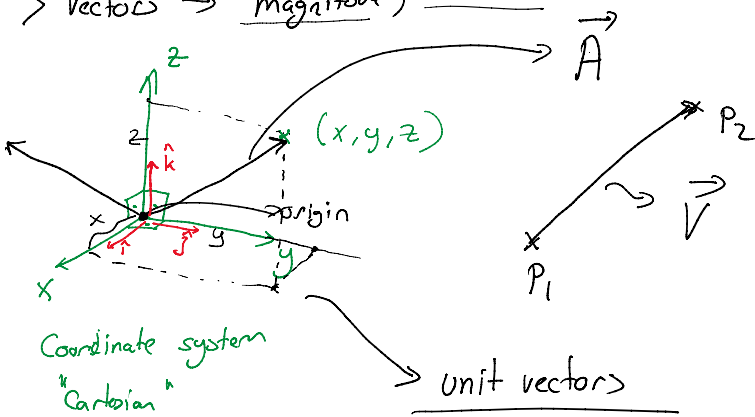 > vectors → magnitude,
z
A
(x, y, z)
P2
z
k̂
x
origin
V
î
ĵ
y
y
x
P1
Coordinate system
"Cartesian"
unit vectors